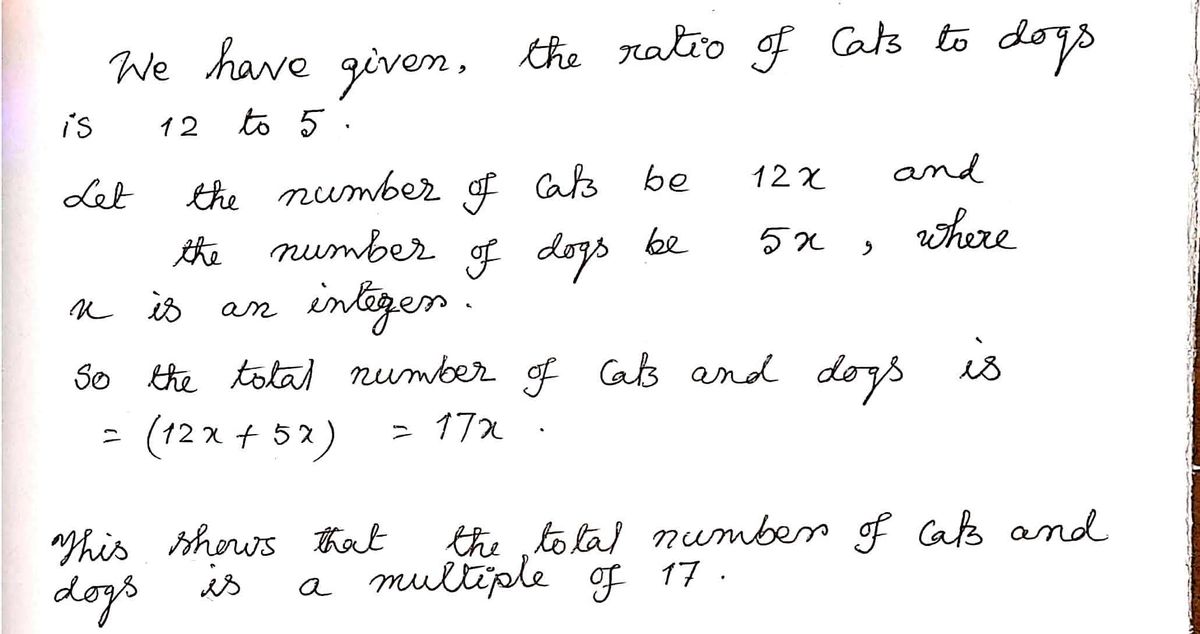 We have given, the ratio of Cats to dogs
is 12 to 5.
Let the number of Cats be 12x and
the number of dogs be 5x, where
x is an integer.
So the total number of Cats and dogs is
= (12x + 5x) = 17x.
This shows that the total number of Cats and
dogs is a multiple of 17.